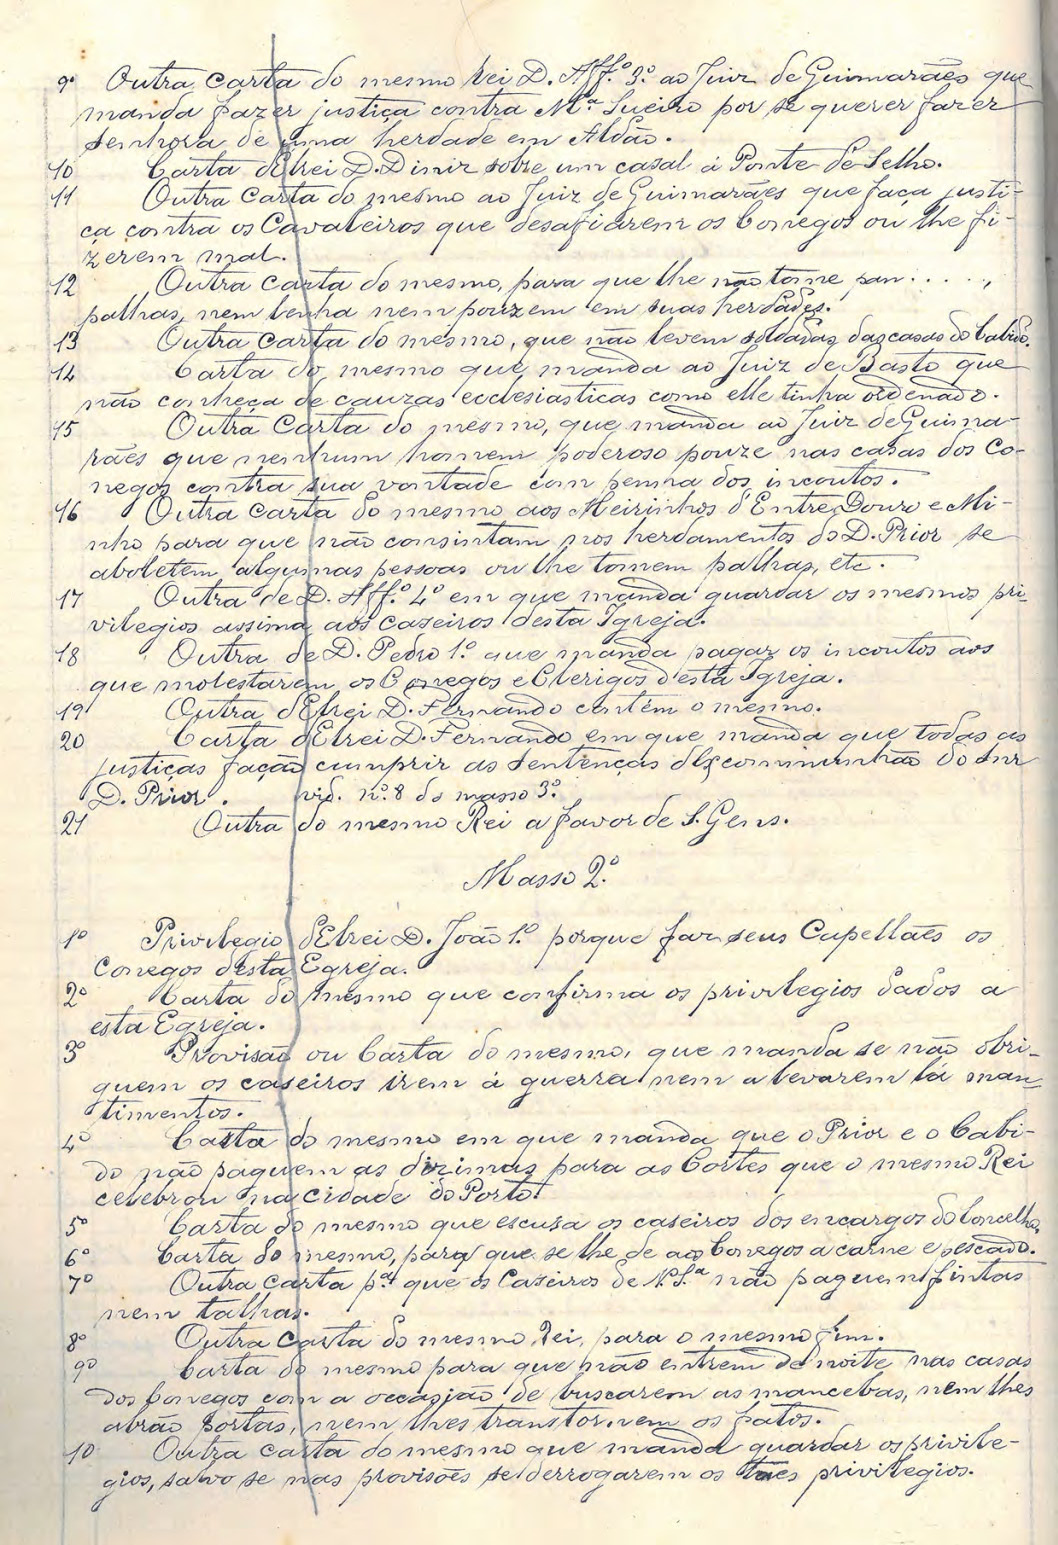 9º Outra carta do mesmo Rei D. Aff.º 3.º ao Juiz de Guimarães que
manda fazer justiça contra M.ª Sueiro por se querer fazer
senhora de uma herdade em Aldão.
10 Carta d'Elrei D. Diniz sobre um casal á Ponte de Selho.
11 Outra Carta do mesmo ao Juiz de Guimarães que faça justi-
ça contra os Cavaleiros que desafiárem os Conegos ou lhe fi-
zerem mal.
12 Outra carta do mesmo, para que lhe não tome pan . . . . . ,
palhas, nem lenha nem pouzem em suas herdades.
13 Outra Carta do mesmo, que não levem soldadas das casas do Cabido.
14 Carta do mesmo que manda ao Juiz de Basto que
não conheça de cauzas ecclesiasticas como elle tinha ordenado.
15 Outra Carta do mesmo, que manda ao Juiz de Guima-
rães que nenhum homem poderoso pouze nas casas dos Co-
negos contra sua vontade com penna dos incoutos.
16 Outra Carta do mesmo aos Meirinhos d'Entre Douro e Mi-
nho para que não consintam nos herdamentos do D. Prior se
aboletem algumas pessoas ou lhe tomem palhas, etc.
17 Outra de D. Aff.º 4º em que manda guardar os mesmos pri-
vilegios assima aos caseiros desta Igreja.
18 Outra de D. Pedro 1.º que manda pagar os incoutos aos
que molestarem os Conegos e Clerigos desta Igreja.
19 Outra d'Elrei D. Fernando contém o mesmo.
20 Carta d'Elrei D. Fernando em que manda que todas as
justiças fação cumprir as sentenças d'Excommunhão do Snr
D. Prior. vid. nº. 8 do masso 3º.
21 Outra do mesmo Rei a favor de S. Gens.
Masso 2.º
1º Privilegio d'Elrei D. João 1.º porque faz seus Capellães os
Conegos desta Egreja.
2º Carta do mesmo que confirma os privilegios dados a
esta Egreja.
3º Provisão ou Carta do mesmo, que manda se não obri-
guem os caseiros irem á guerra nem a levarem lá man-
timentos.
4º Carta do mesmo em que manda que o Prior e o Cabi-
do não paguem as dizimas para as Cortes que o mesmo Rei
celebrou na cidade do Porto.
5º Carta do mesmo que escusa os caseiros dos encargos do Concelho.
6º Carta do mesmo, para que se lhe de aos Conegos a carne e pescado.
7º Outra Carta pª que os Caseiros de N. S.ª não paguem fintas
nem talhas.
8º Outra Carta do mesmo Rei, para o mesmo fim.
9º Carta do mesmo para que não entrem de noite nas casas
dos Conegos com a occasião de buscarem as mancebas, nem lhes
abrão portas, nem lhes transtornem os fatos.
10 Outra carta do mesmo que manda guardar os privile-
gios, salvo se nas provisões se derrogarem os taes privilegios.